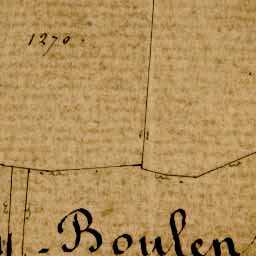 1270.
y - Boulen